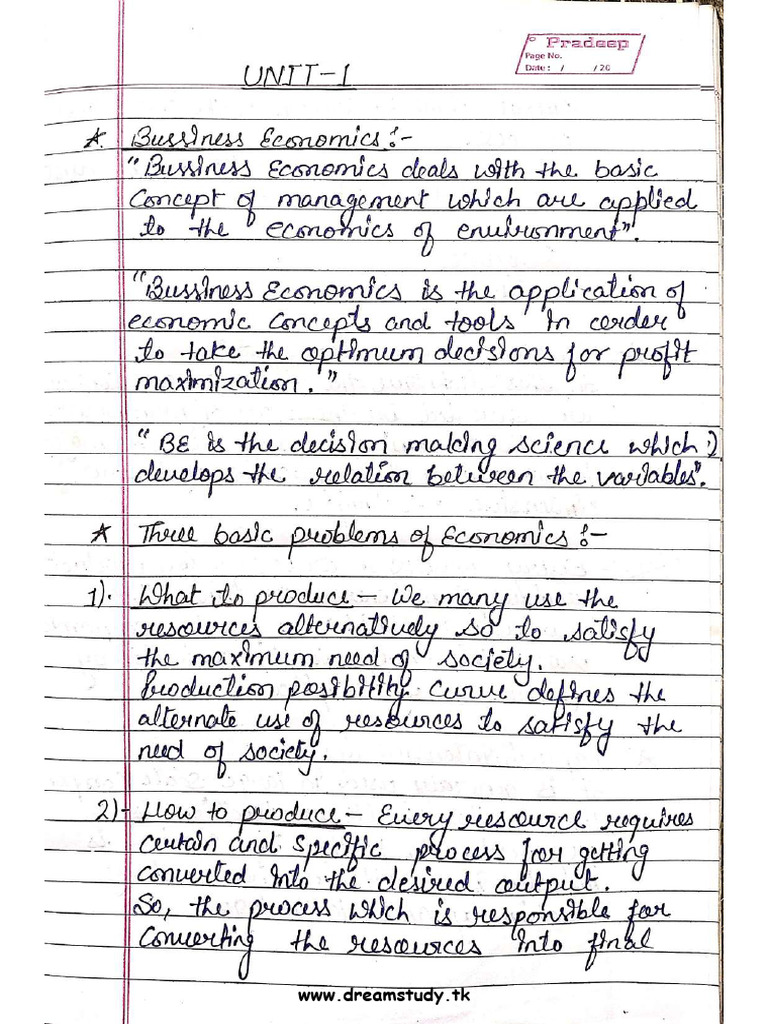 Pradeep
Page No.
Date: / /20
UNIT-1
* Bussiness Economics :-
"Bussiness Economics deals with the basic
Concept of management which are applied
to the economics of environment".
"Bussiness Economics is the application of
economic concepts and tools in order
to take the optimum decisions for profit
maximization."
"BE is the decision making science which
develops the relation between the variables".
* Three basic problems of Economics :-
1). What to produce - We many use the
resources alternatively so to satisfy
the maximum need of society.
Production possibility curve defines the
alternate use of resources to satisfy the
need of society.
2)- How to produce - Every resource requires
certain and specific process for getting
converted into the desired output.
So, the process which is responsible for
converting the resources into final
www.dreamstudy.tk